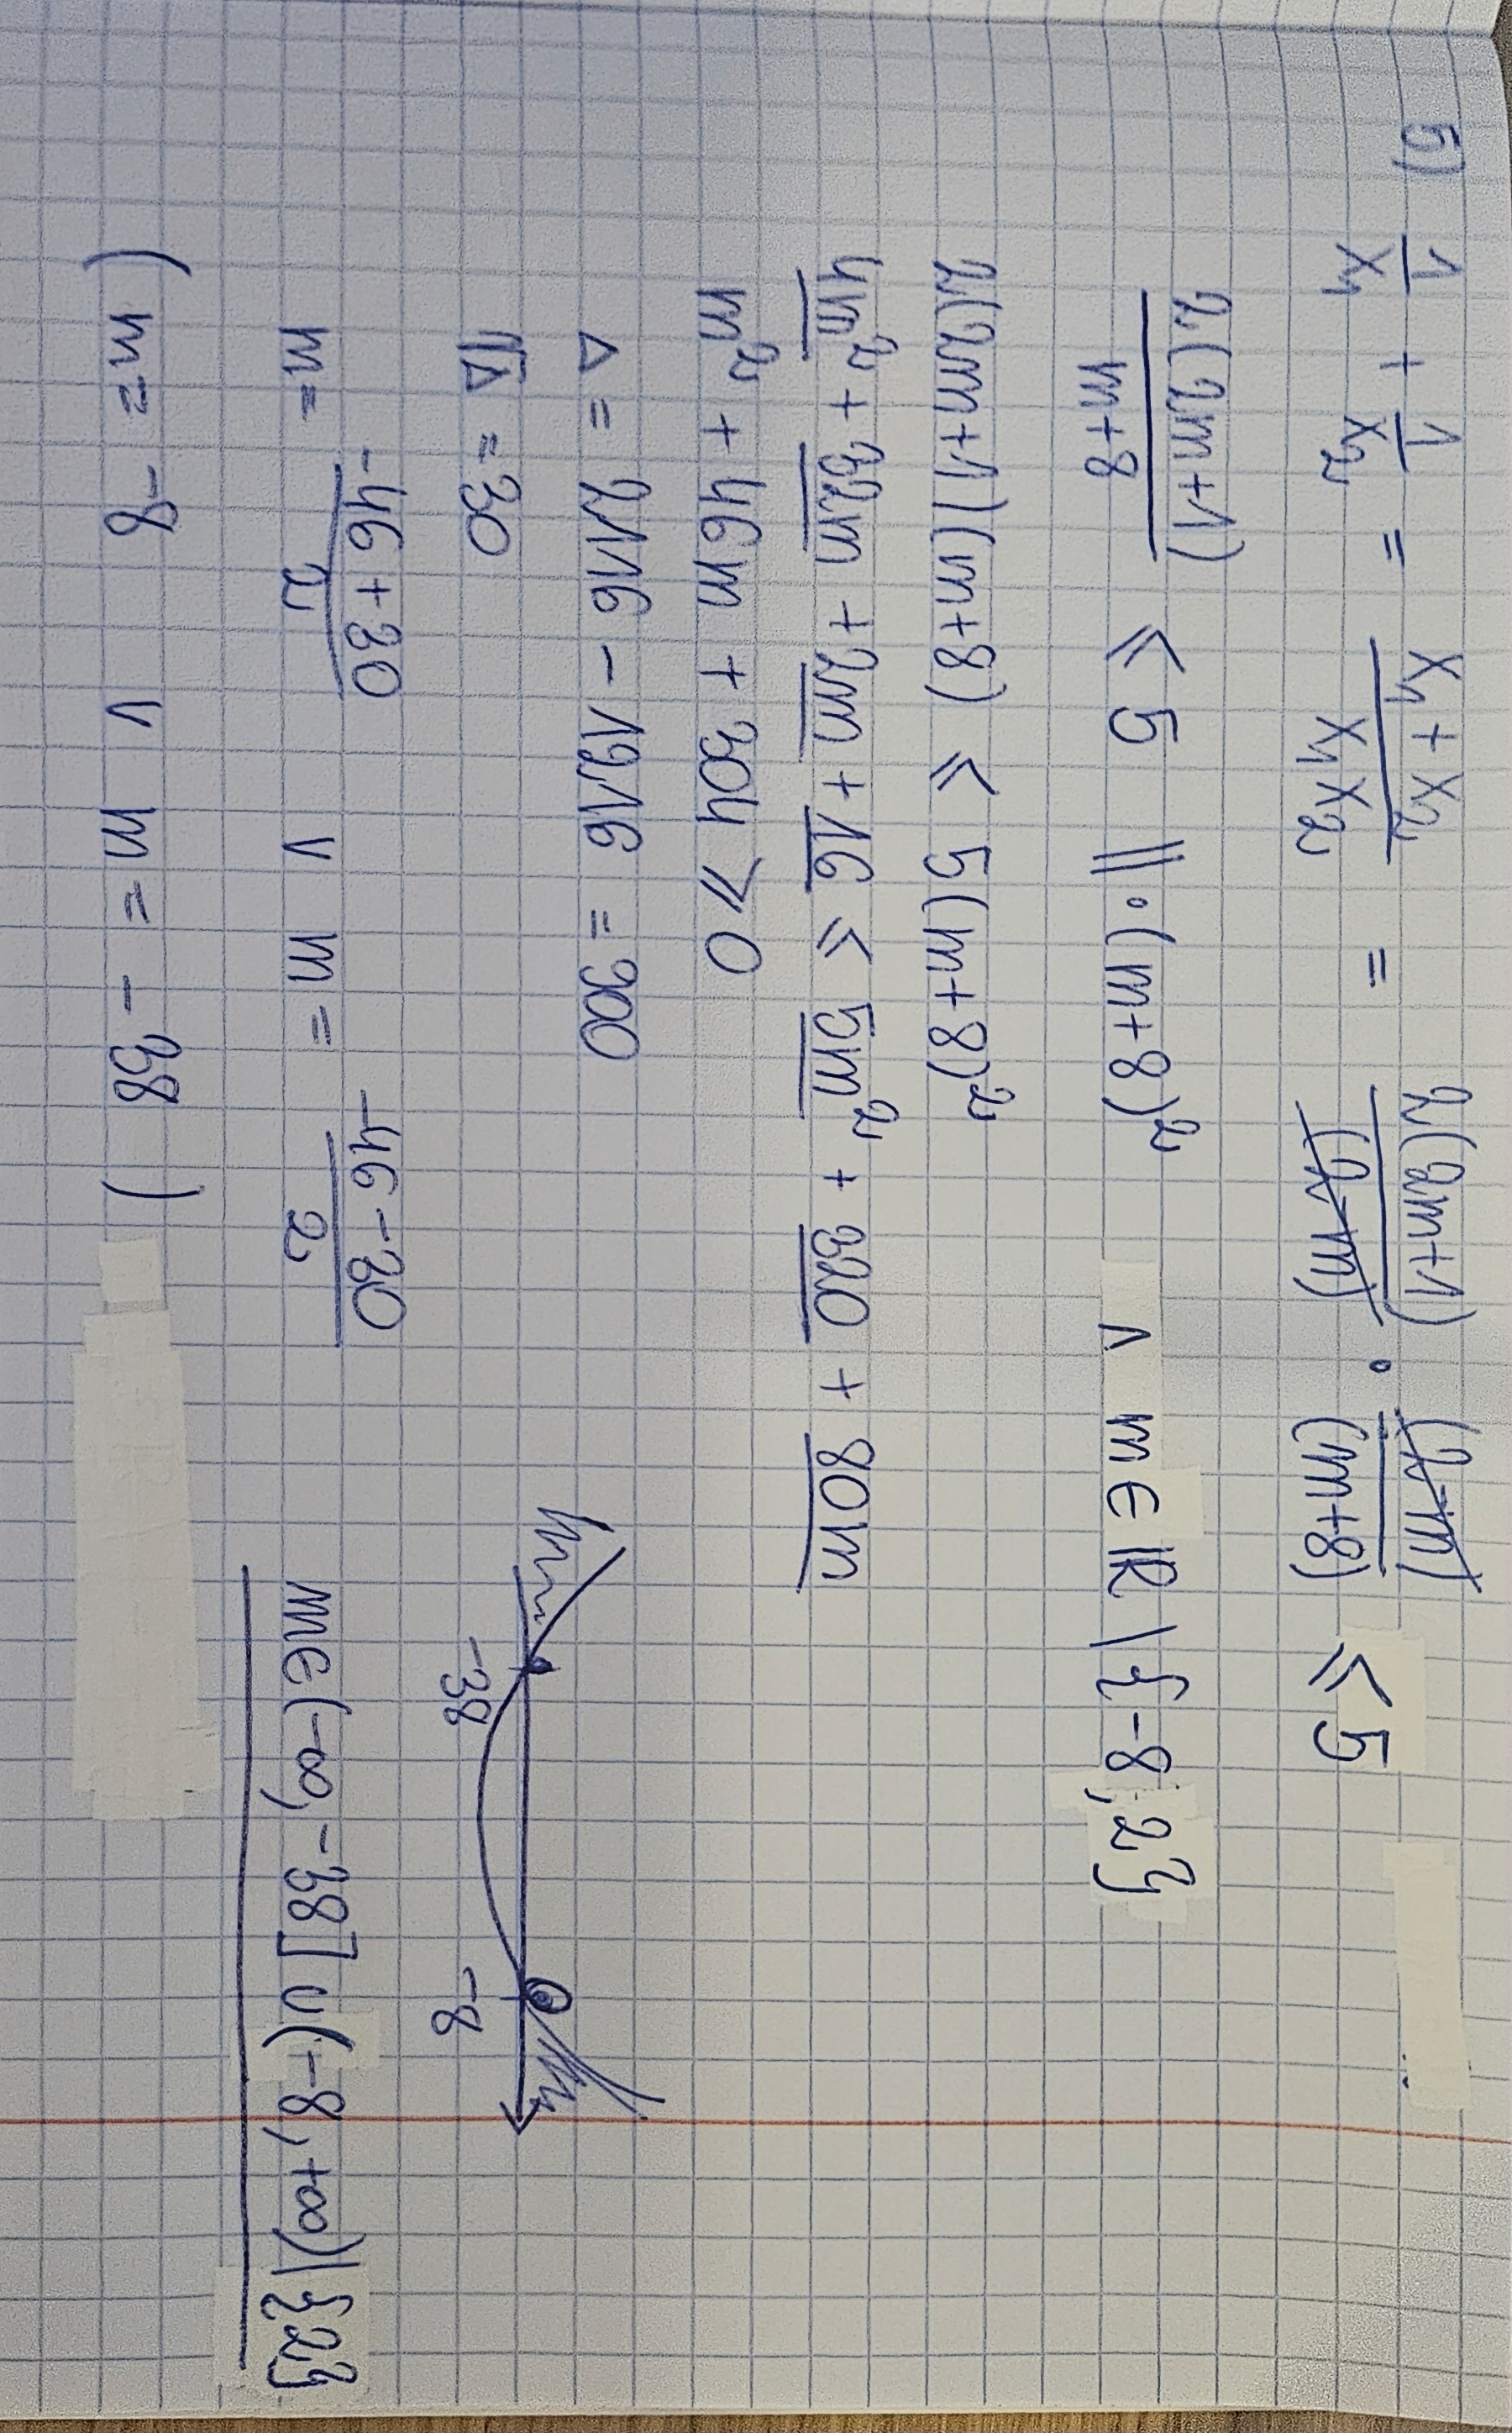 5) 1/x₁ + 1/x₂ = (x₁ + x₂)/(x₁x₂) = 2(2m+1)/(2-m) · (2-m)/(m+8) ≤ 5
2(2m+1)/(m+8) ≤ 5 ||·(m+8)² ∧ m∈ℝ\{-8,2}
2(2m+1)(m+8) ≤ 5(m+8)²
4m² + 32m + 2m + 16 ≤ 5m² + 320 + 80m
m² + 46m + 304 ≥ 0
Δ = 2116 - 1216 = 900
√Δ = 30
m = (-46+30)/2 ∨ m = (-46-30)/2
-38 -8
(m = -8 ∨ m = -38)
m∈(-∞, -38] ∪ (-8, +∞)\{2}